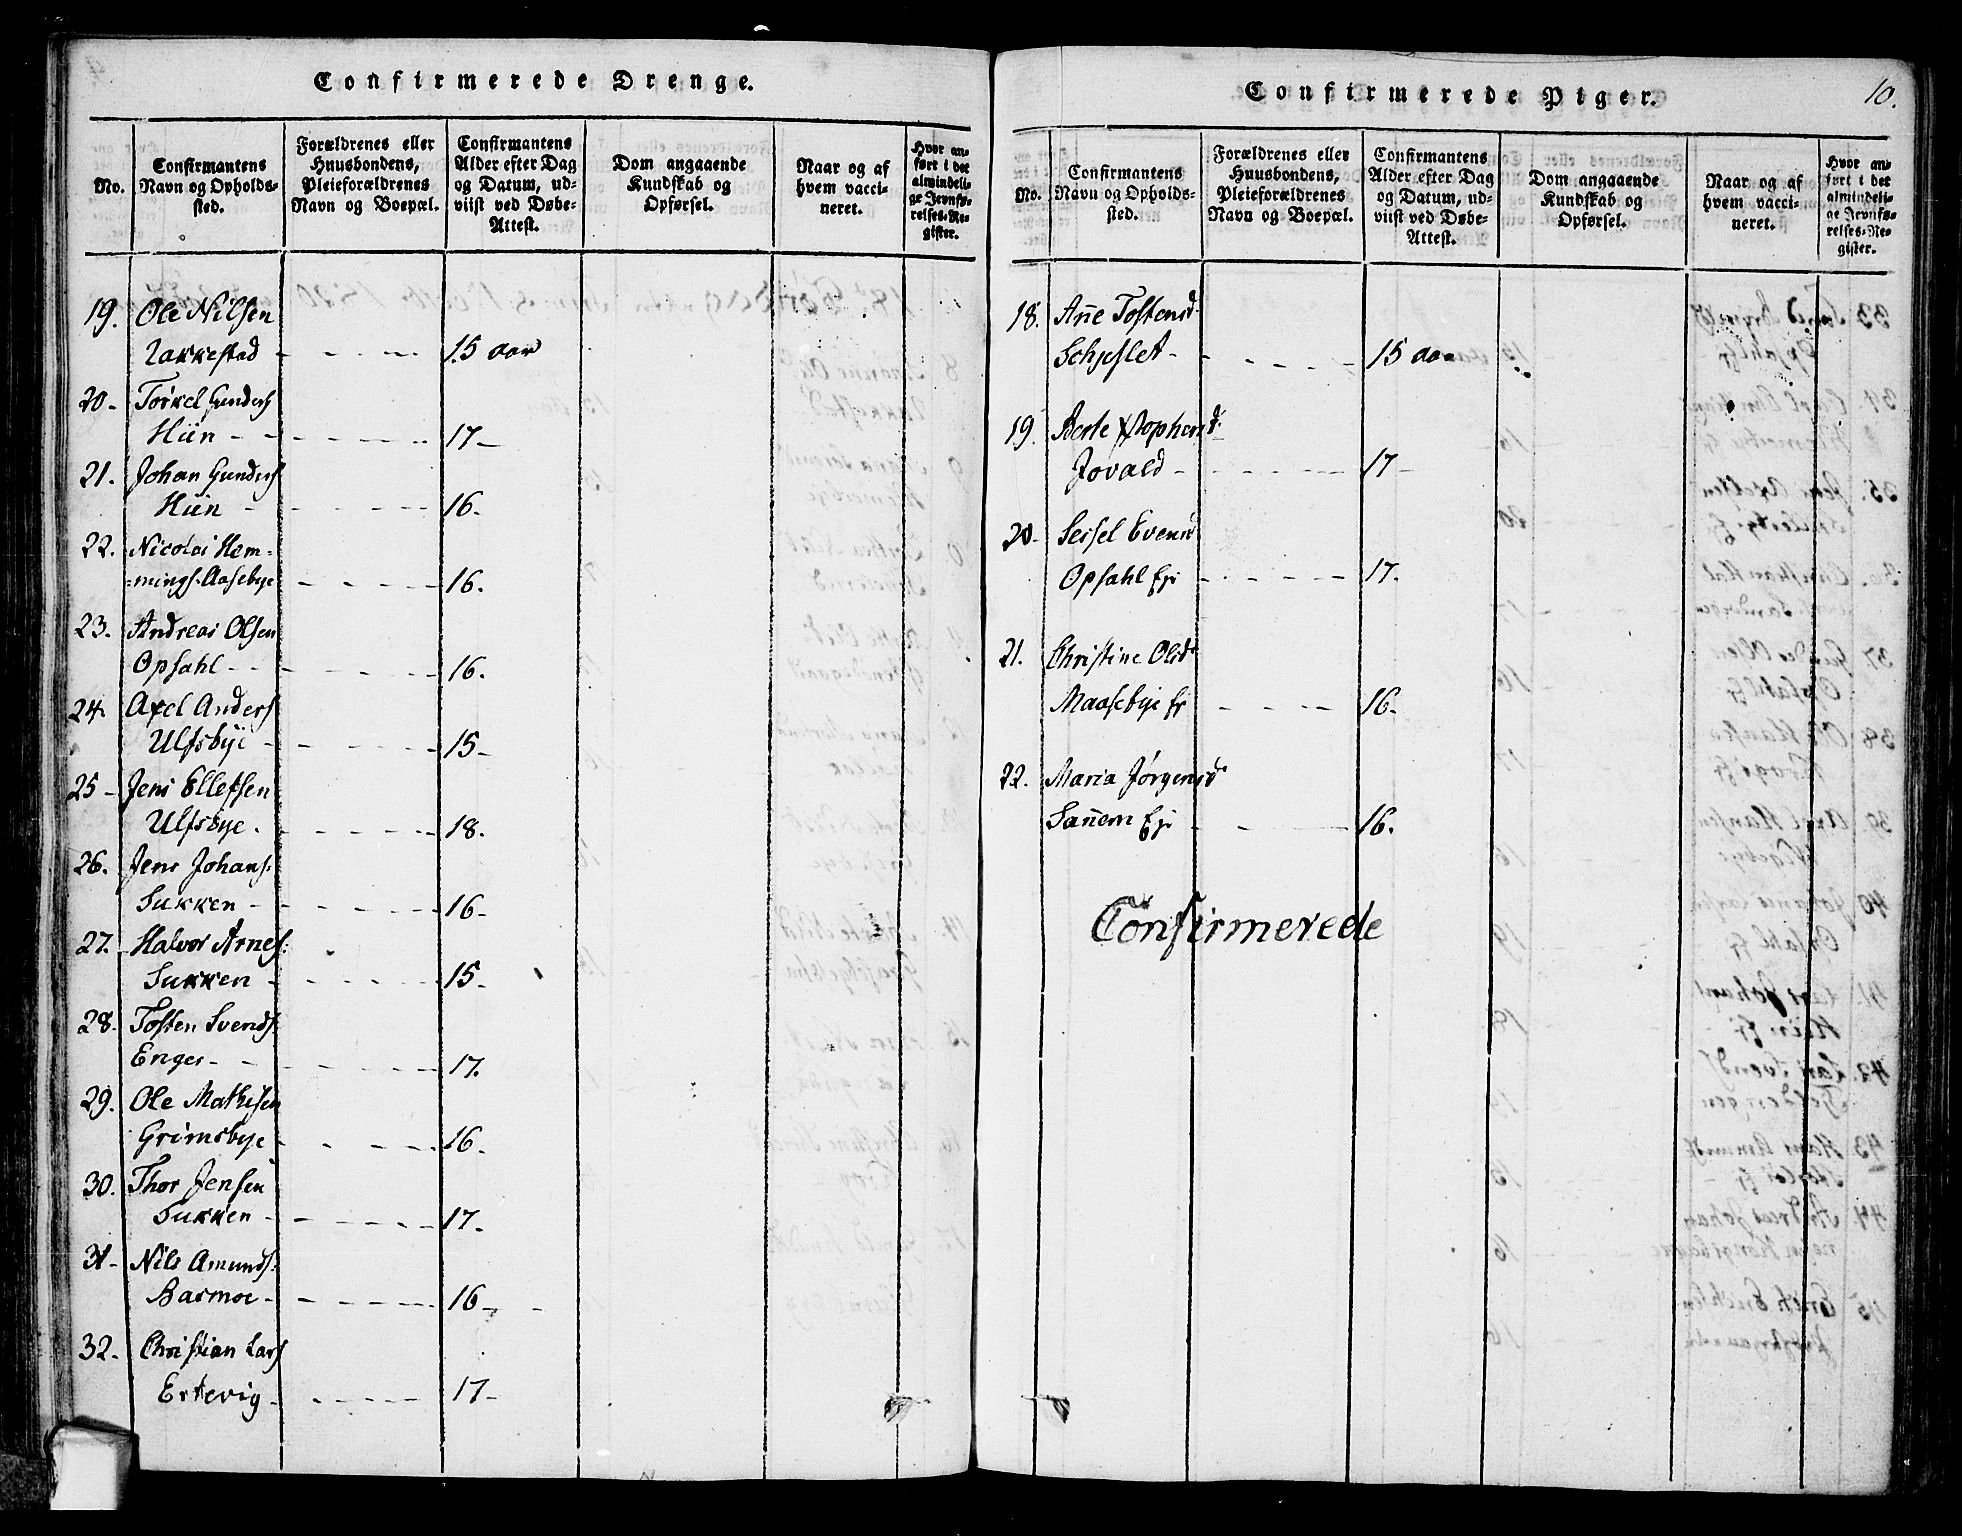 Confirmerede Drenge.
No.
Confirmantens
Navn og Opholds-
sted.
Forældrenes eller
Huusbondens,
Pleieforældrenes
Navn og Boepæl.
Confirmantens
Alder efter Dag
og Datum, ud-
viist ved Døbe-
Attest.
Dom angaaende
Kundskab og
Opførsel.
Naar og af
hvem vacci-
neret.
Hvor an-
ført i det
almindeli-
ge Jevnfø-
relses-Re-
gister.
19. Ole Nilsen
Rakkestad - - - - 15 aar
20- Torkel Gunders
Hiin - - - - - - 17-
21. Johan Gunders
Hiin - - - - - 16.
22. Nicolai Hem-
=mings. Aasebye - - - - 16.
23. Andreas Olsen
Opsahl - - - - - - 16.
24. Axel Anders
Ulfsbye - - - - - 15-
25- Jens Ellefsen
Ulfsbye. - - - - - 18.
26. Jens Johans:
Sukken - - - - - 16-
27. Halvor Arnes:
Sukken - - - - - 15-
28- Tosten Svends
Enger - - - - - - 17.
29. Ole Mathisen
Grimsbye - - - - 16-
30. Thor Jensen
Sukken - - - - - 17-
31- Nils Amunds:
Basmoe - - - - - 16-
32- Christian Lars
Ertevig - - - - - 17-
Confirmerede Piger.
10.
No.
Confirmantens
Navn og Opholds-
sted.
Forældrenes eller
Huusbondens,
Pleieforældrenes
Navn og Boepæl.
Confirmantens
Alder efter Dag
og Datum, ud-
viist ved Døbe-
Attest.
Dom angaaende
Kundskab og
Opførsel.
Naar og af
hvem vacci-
neret.
Hvor an-
ført i det
almindeli-
ge Jevnfø-
relses-Re-
gister.
18. Añe Tostensd.
Schjeslet - - - - - 15 aar
19. Berte
Jovald - - - - - 17-
20- Sessel Evensd
Opsahl Ej - - - - 17.
21. Christine Olsd.
Maasebye Ej - - - - 16-
22. Maria Jørgensd.
Sañem Ej - - - - 16.
Confirmerede